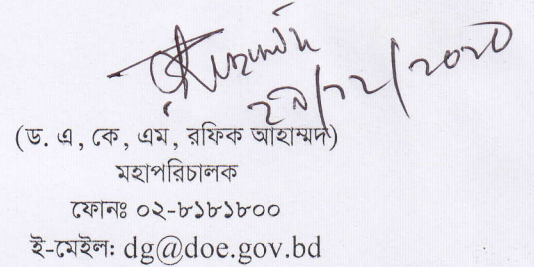 ২৯/১২/২০২০
(ড. এ, কে, এম, রফিক আহাম্মদ)
মহাপরিচালক
ফোনঃ ০২-৮১৮১৮০০
ই-মেইল: dg@doe.gov.bd